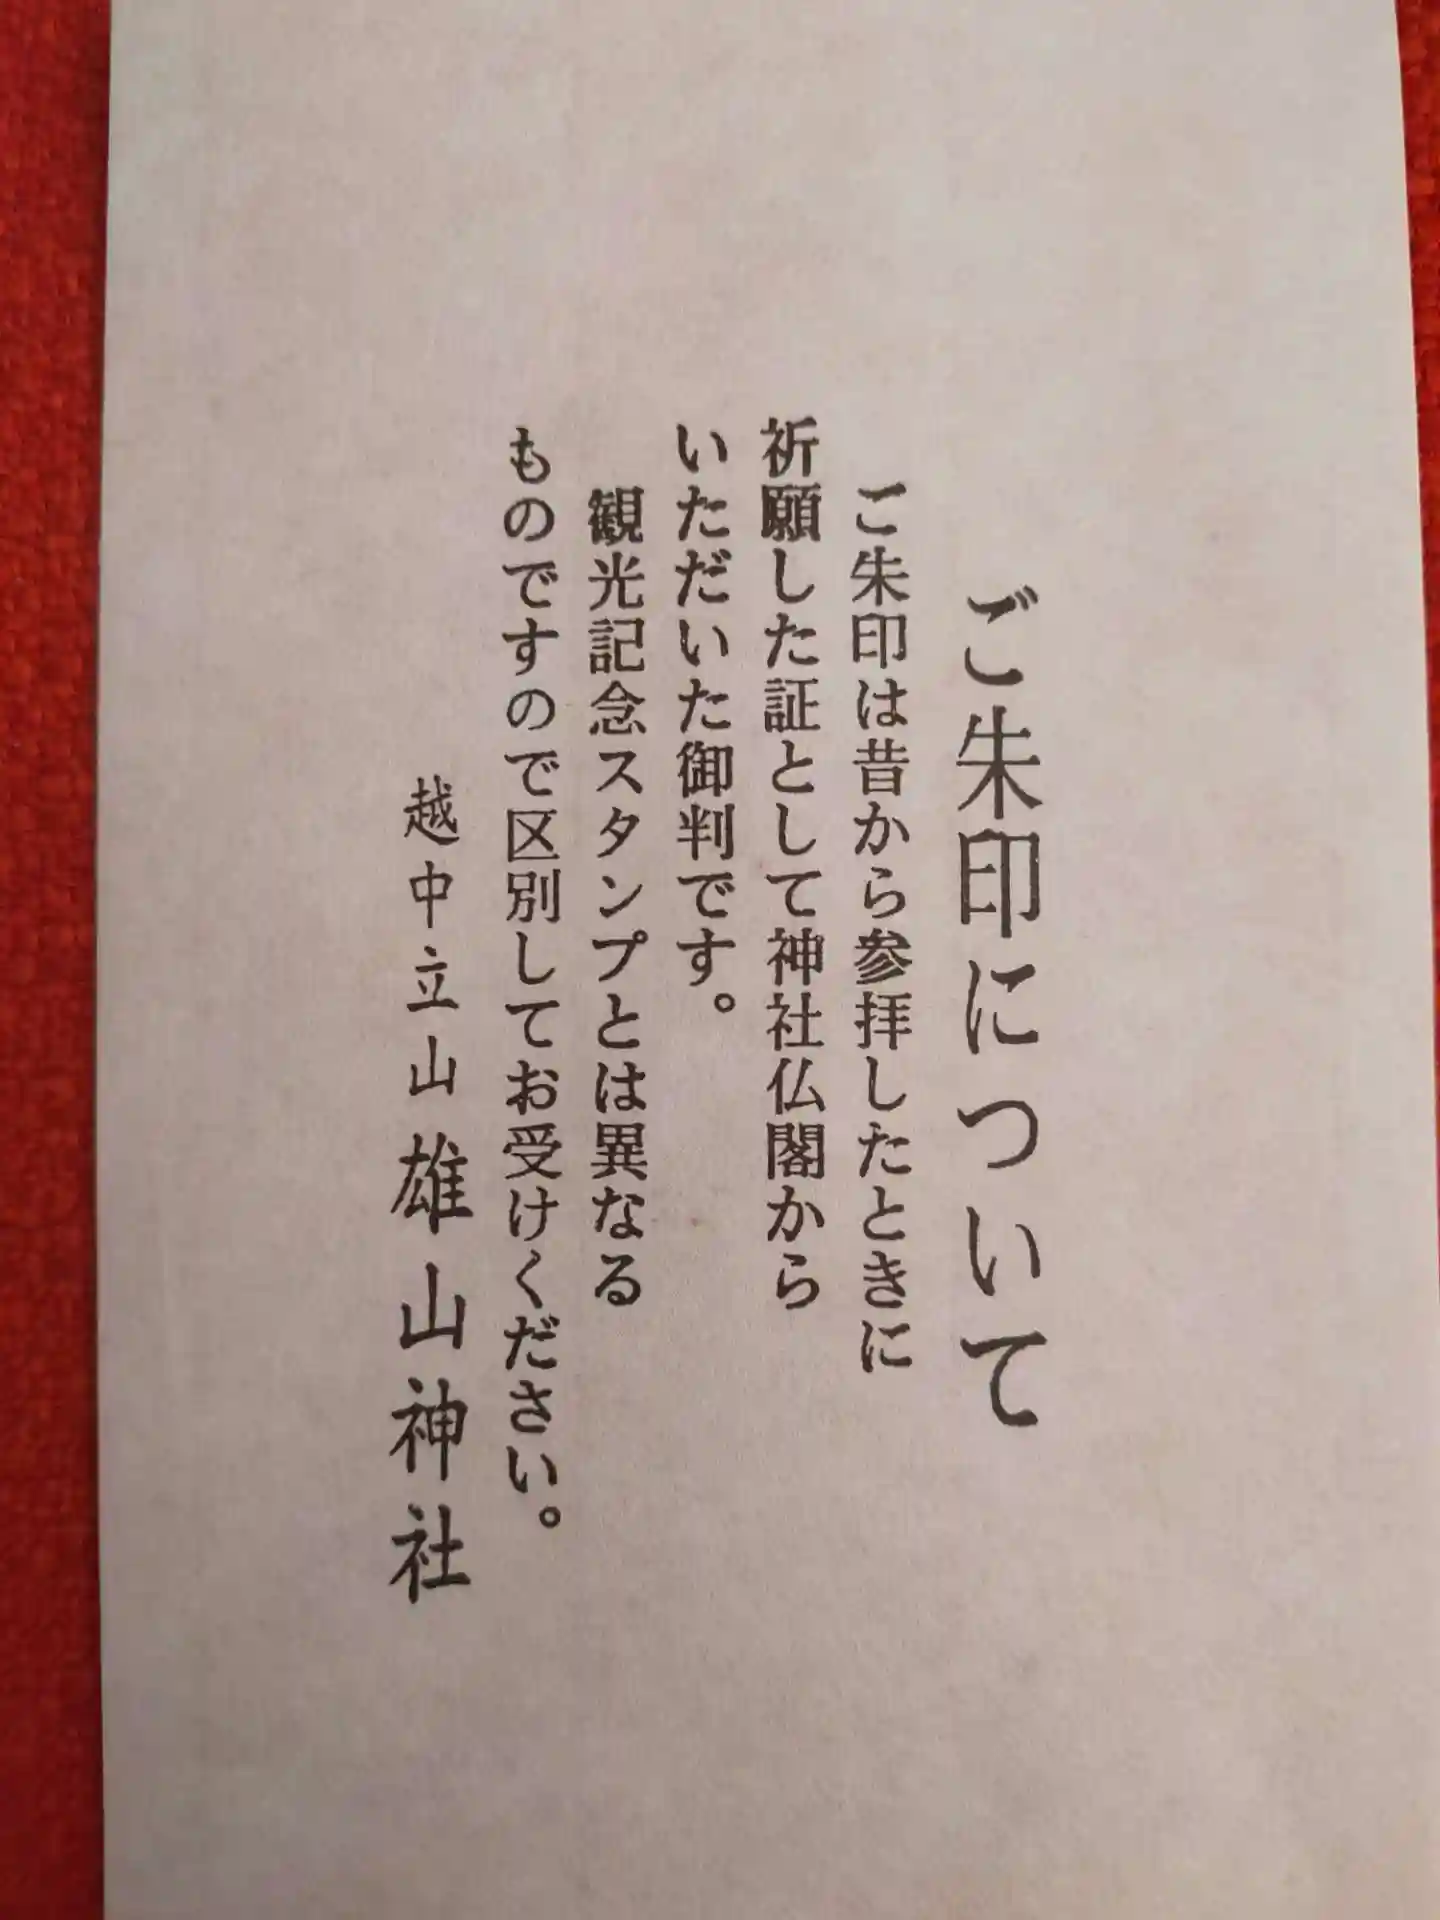 ご朱印について
ご朱印は昔から参拝したときに
祈願した証として神社仏閣から
いただいた御判です。
観光記念スタンプとは異なる
ものですので区別してお受けください。
越中立山 雄山神社